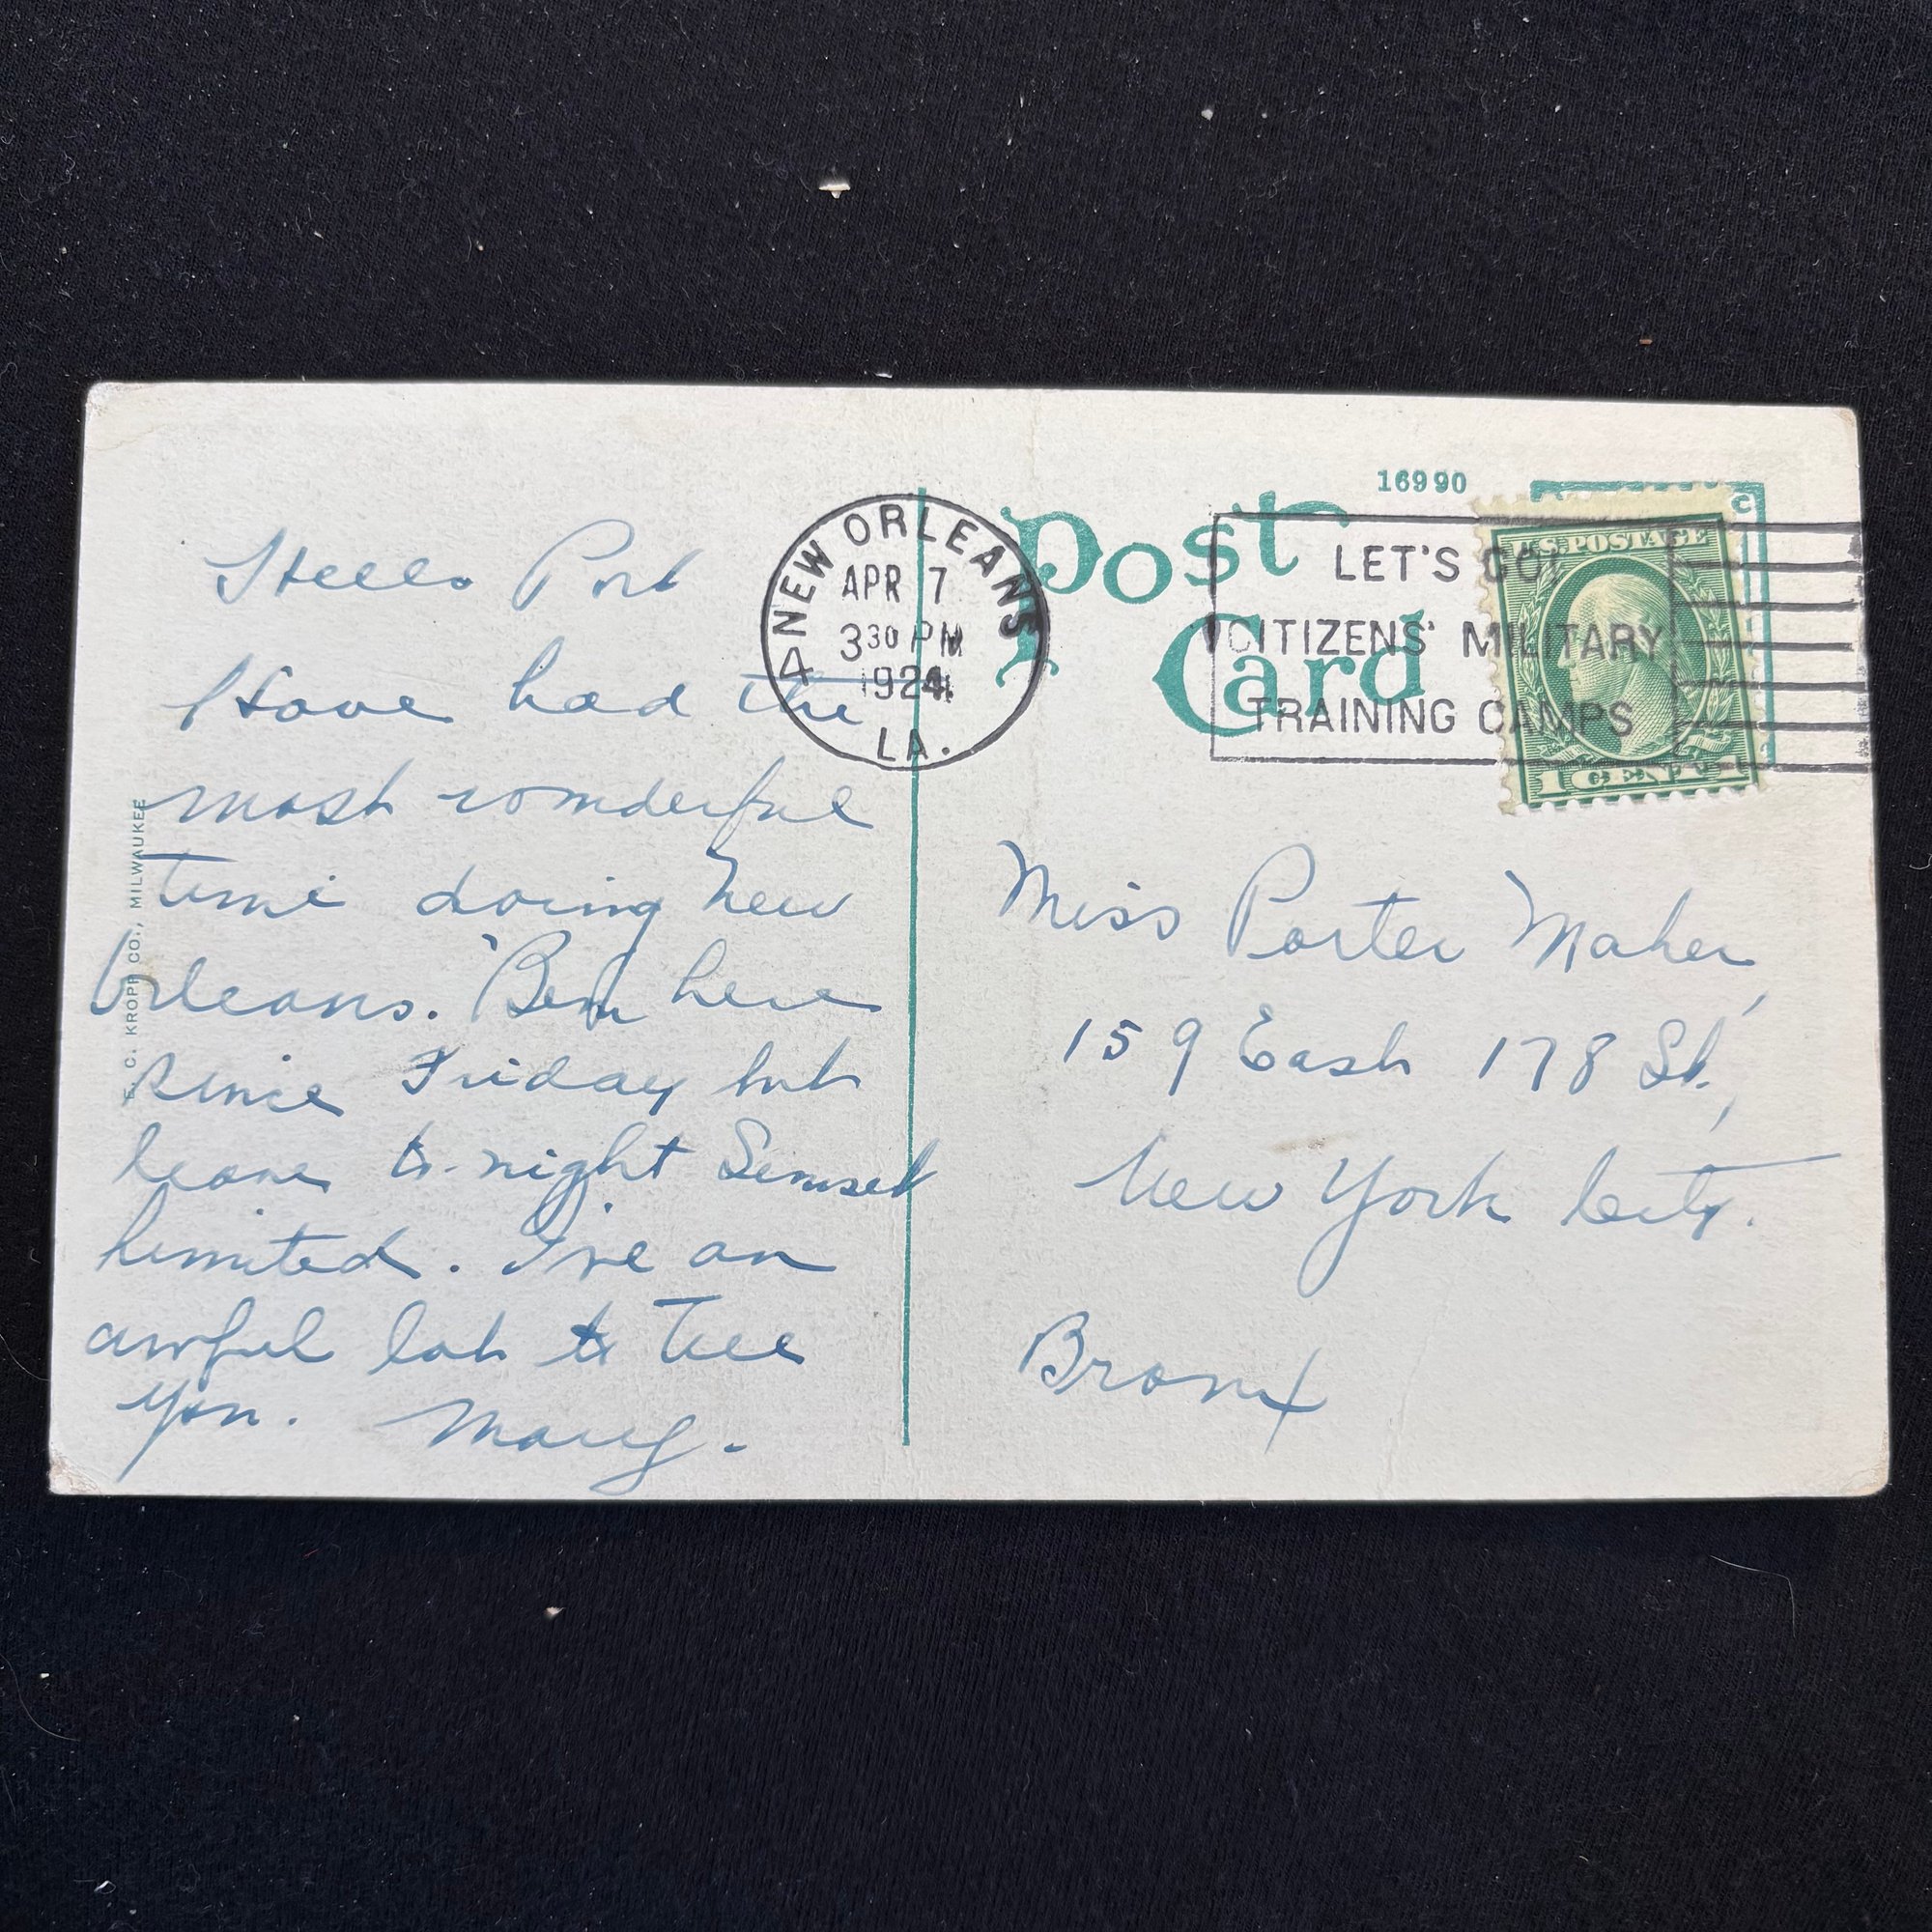 Hello Port
Have had the
most wonderful
time doing New
Orleans. Been here
since Friday but
leave to-night Sunset
limited. I've an
awful lot to tell
you. Mary.
E. C. KROPP CO., MILWAUKEE
NEW ORLEANS
APR 7
3 30 PM
1924
LA.
4
16990
Post
Card
LET'S GO!
CITIZENS' MILITARY
TRAINING CAMPS
U.S. POSTAGE
1 CENT 1
C
Miss Porter Maher,
159 East 178 St.,
New York City.
Bronx